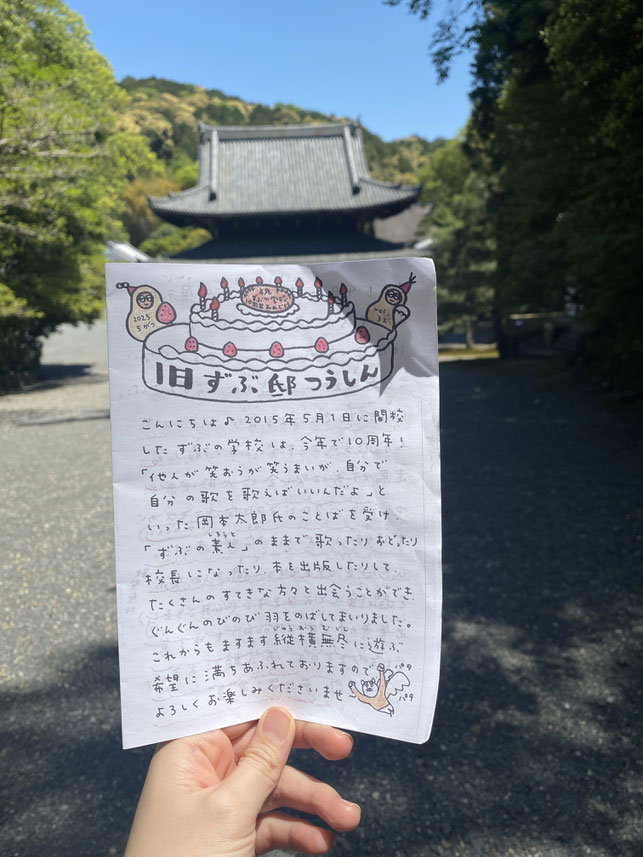 祝
2025
5がつ
vol.
32
旧ずぶ邸つうしん
こんにちは♪ 2015年5月1日に開校
したずぶの学校は、今年で10周年!
「他人が笑おうが笑うまいが、自分で
自分の歌を歌えばいいんだよ」と
いった岡本太郎氏のことばを受け、
しろうと
「ずぶの素人」のままで歌ったりおどったり
校長になったり、本を出版したりして、
たくさんのすてきな方々と出会うことができ、
ぐんぐんのびのび羽をのばしてまいりました。
じゅうおうむじん
これからもますます縦横無尽に遊ぶ
希望に満ちあふれておりますので
よろしくお楽しみくださいませ
パタ
パタ